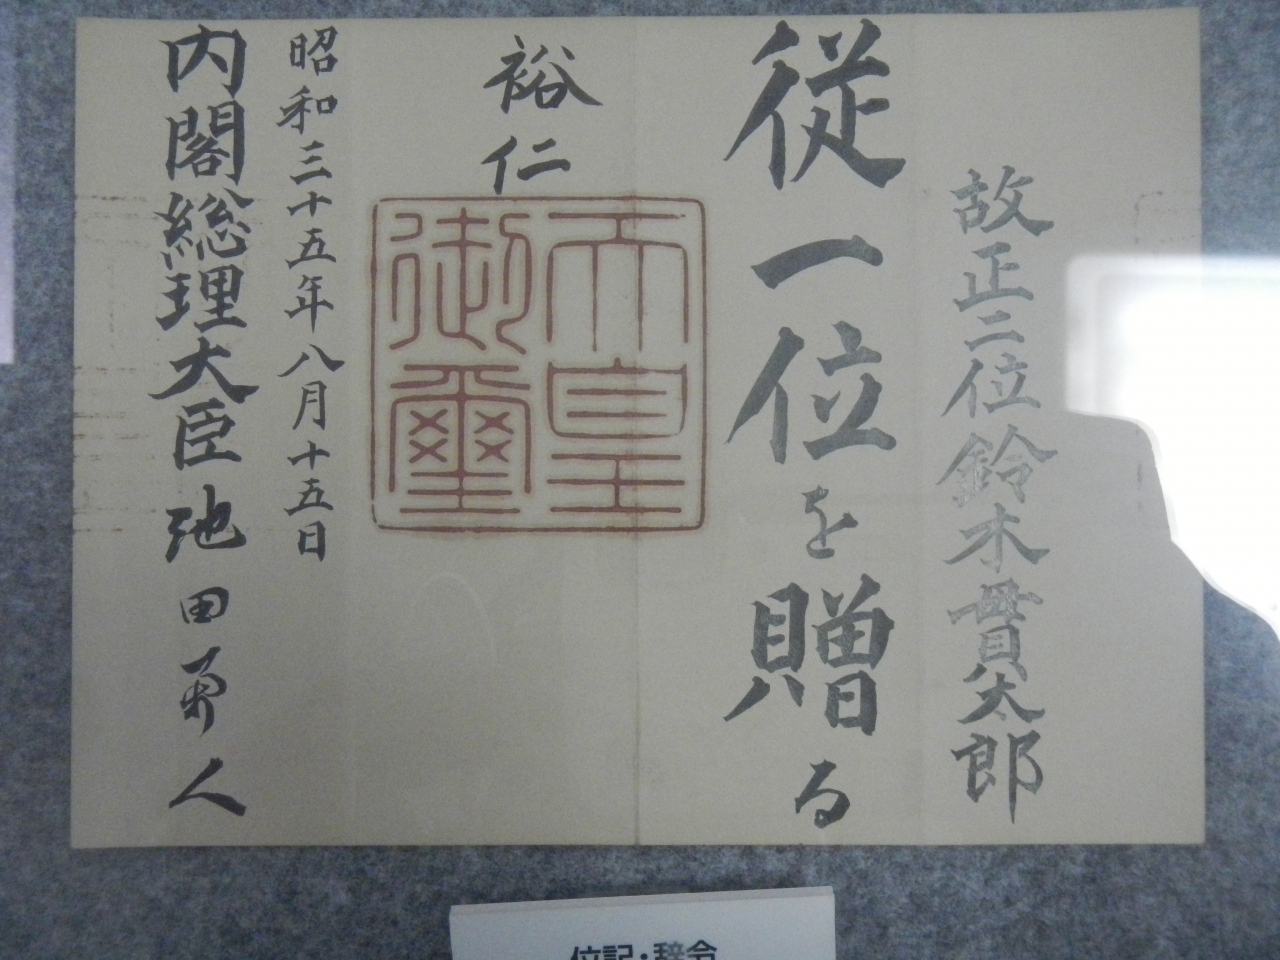 故正二位鈴木貫太郎
従一位を贈る
裕仁
天皇
御璽
昭和三十五年八月十五日
内閣総理大臣池田勇人
位記・辞令